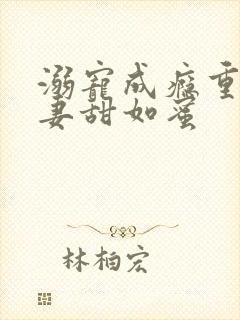 溺宠成瘾重
妻甜如蜜
林柏宏